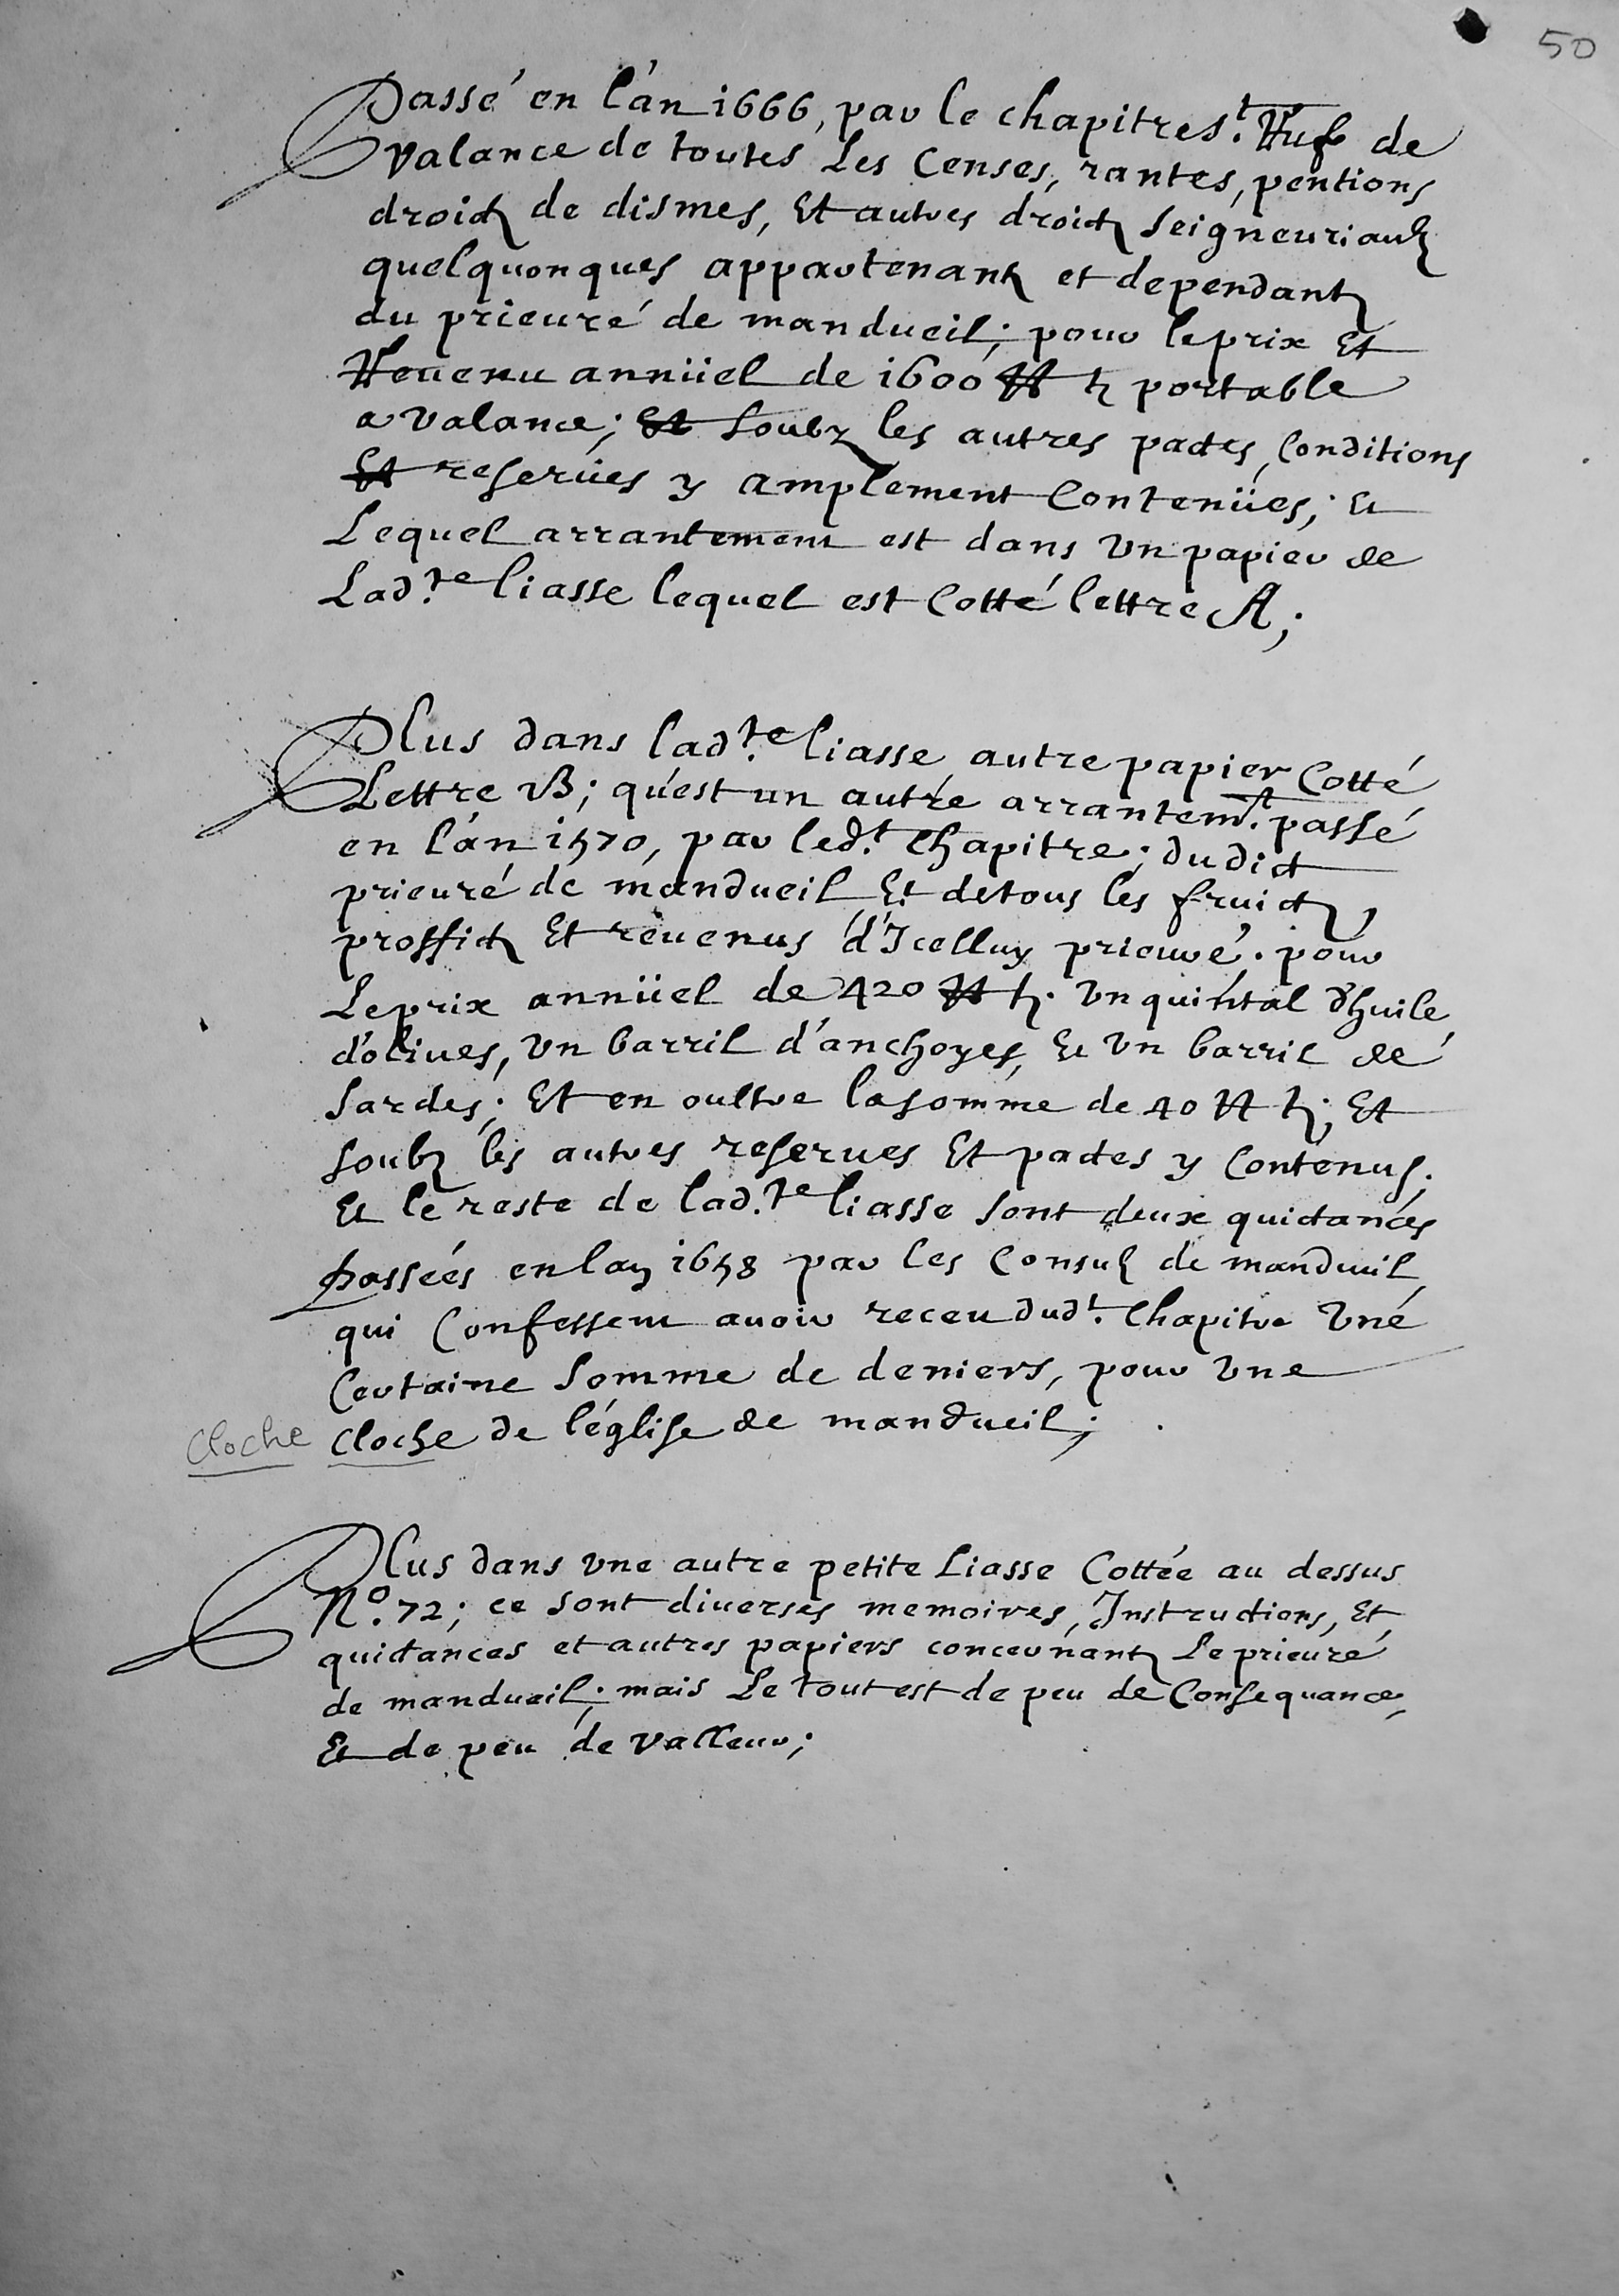 50
Passé en l'an 1666, par le chapitre St. Ruf de
Valance de toutes Les Censes, rantes, pentions
droictz de dismes, Et autres droictz seigneuriaulx
quelquonques appartenantz et dependantz
du prieuré de mandueil; pour le prix Et
Reuenu annüel de 1600 ₶ tz portable
a valance; Et soubz les autres pactes, Conditions
Et reserües y amplement Contenües; Et
Lequel arrantement est dans Vn papier de
Lad.te liasse lequel est Cotté lettre A;
Plus dans lad.te liasse autre papier Cotté
Lettre B; qu'est un autre arrantem.t passé
en l'an 1570, par led.t Chapitre; dudict
prieuré de mandueil Et de tous les fruictz,
proffictz Et reuenus d'Icelluy prieuré. pour
Le prix annüel de 420 ₶ tz. Vn quintal d'huile
d'oliues, Vn barril d'anchoyes, Et Vn barril de
sardes; Et en oultre la somme de 40 ₶ tz; Et
soubz les autres reserues Et pactes y Contenus.
Et le reste de lad.te liasse sont deux quictances
passées en lan 1658 par les Consulz de mandueil
qui Confessent auoir receu dud.t Chapitre Vne
Certaine somme de deniers, pour Vne
Cloche cloche de l'églize de mandueil;
Plus dans vne autre petite Liasse Cottée au dessus
N.o 72; ce sont diuerses memoires, Instructions, Et
quictances et autres papiers concernantz Le prieuré
de mandueil; mais Le tout est de peu de Consequance,
Et de peu de valleur;